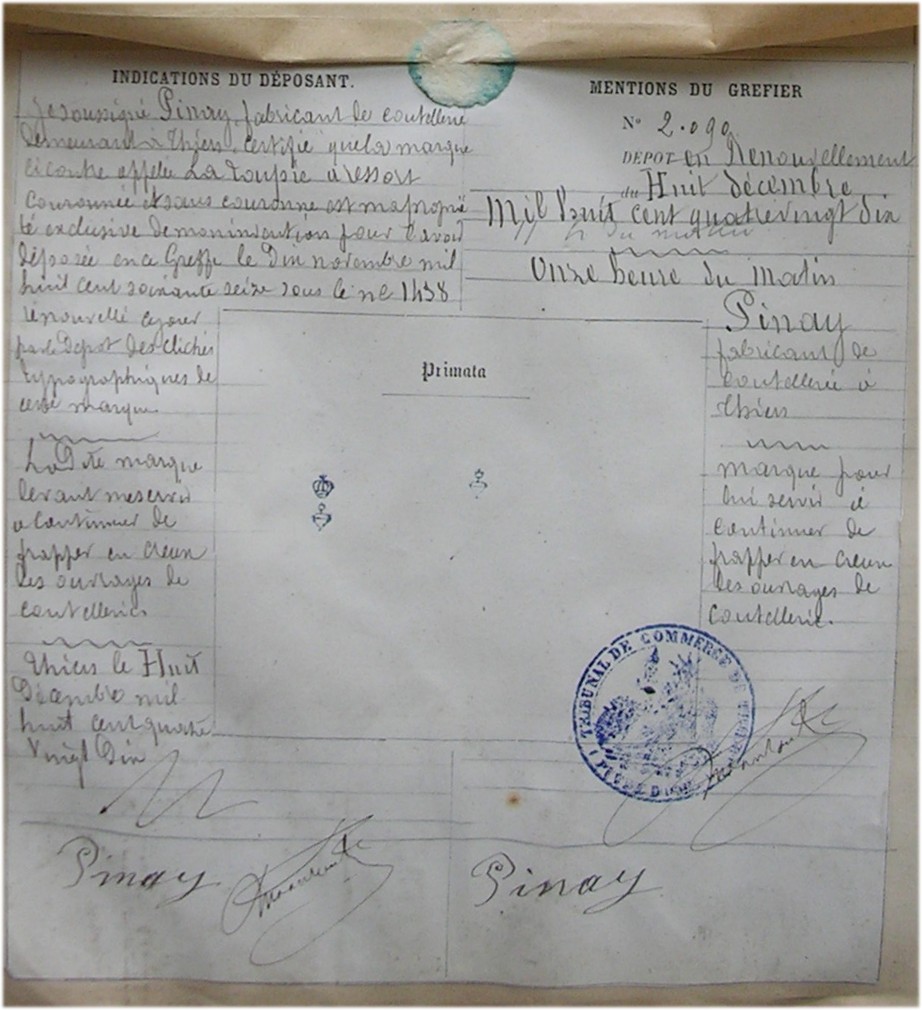 INDICATIONS DU DÉPOSANT.
Je soussigné Pinay, fabricant de coutellerie
demeurant à Thiers, certifie que la marque
ci contre appelée La Toupie à ressort
Couronnée et sans couronne est ma proprié
té exclusive de mon invention pour l'avoir
déposée en ce Greffe le Dix novembre mil
huit cent soixante seize sous le no 1438
renouvellé ce jour
par le Depot des clichés
typographiques de
cette marque
La Dite marque
devant me servir
a continuer de
frapper en creux
les ouvrages de
coutelleries
Thiers le Huit
Décembre mil
huit cent quatre
Vingt Dix
Pinay
MENTIONS DU GREFIER
N° 2.090
DEPOT en Renouvellement
du Huit décembre
Mil huit cent quatre vingt dix
11 h du matin
Onze heure du Matin
Pinay
fabricant de
Coutellerie à
Thiers
marque pour
lui servir à
continuer de
frapper en creux
les ouvrages de
Coutellerie.
Primata
TRIBUNAL DE COMMERCE DE
PUY DE DOME
Pinay